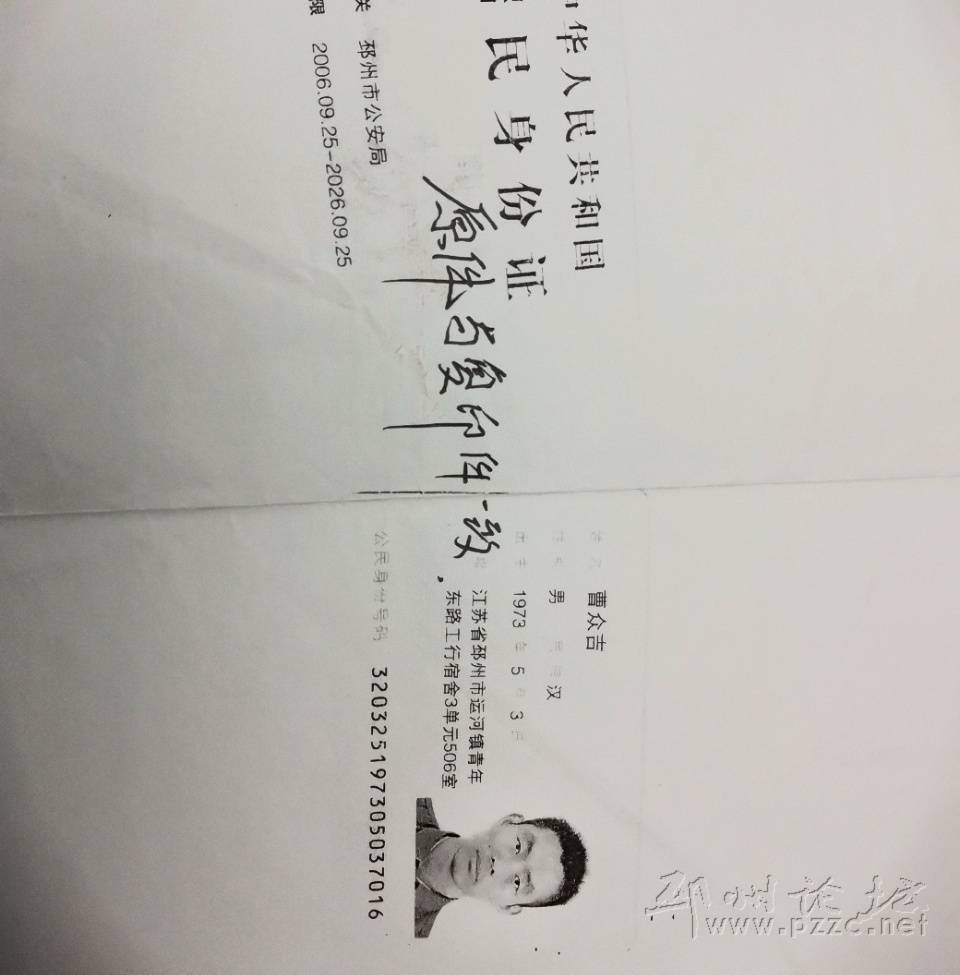 华人民共和国
居民身份证
原件与复印件一致,
关 邳州市公安局
限 2006.09.25-2026.09.25
姓名 曹众吉
性别 男 民族 汉
出生 1973 年 5 月 3 日
江苏省邳州市运河镇青年
东路工行宿舍3单元506室
公民身份号码 320325197305037016
邳州论坛
www.pzzc.net